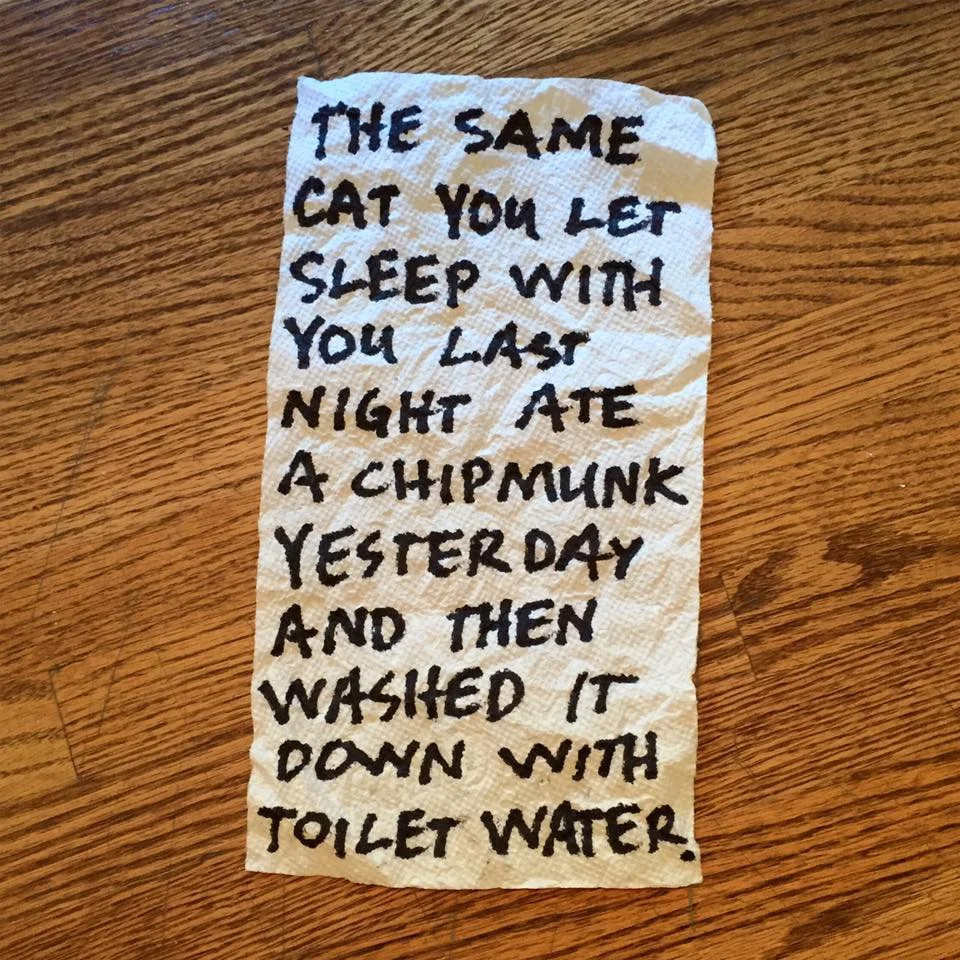 THE SAME
CAT YOU LET
SLEEP WITH
YOU LAST
NIGHT ATE
A CHIPMUNK
YESTERDAY
AND THEN
WASHED IT
DOWN WITH
TOILET WATER.